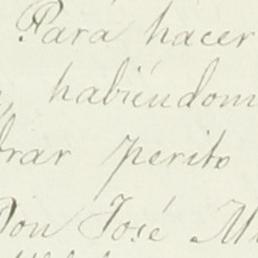 Para hacer
habiéndom
rar perito
Don José M